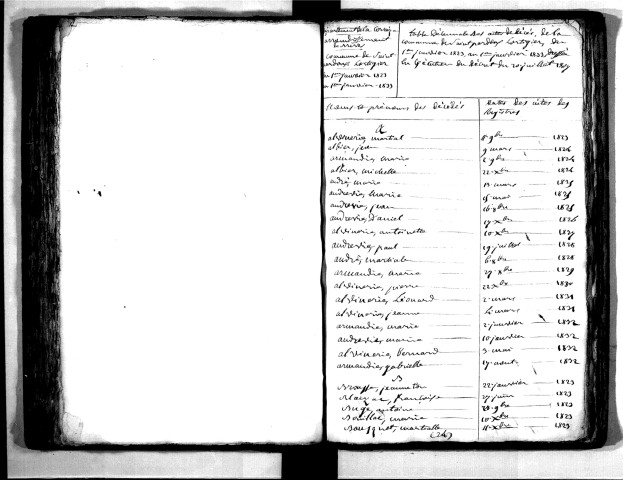 Département de la Corrèze
arrondissement
commune de Saint
pardoux Lortigier
1er janvier 1823
au 1er janvier 1833
table Décennale des actes de décès, de la
commune de Saint pardoux Lortigier, du
1er janvier 1823, au 1er janvier 1833, dressée
en exécution du Décret du 20 juillet 1807
Noms et prénoms des décédés
Dates des actes des
Registres
A
martial 8 9bre 1823
albier, jean 9 mars 1824
armandie, marie 2 9bre 1824
albier, michelle 22 Xbre 1824
andré, marie 13 mars 1825
andrevie, marie 15 mai 1825
andrevie, jean 16 8bre 1825
andrevie, Daniel 17 Xbre 1826
alvinerie, antoinette 10 Xbre 1827
andrevie, paul 29 juillet 1828
andré, martiale 6 8bre 1828
armandie, marie 27 8bre 1829
alvinerie, pierre 22 Xbre 1830
alvinerie, Léonard 2 mars 1831
alvinerie, jeanne mars 1831
armandie, marie 2 janvier 1832
andrevie, marie 10 janvier 1832
alvinerie, Bernard 3 mai 1832
armandie, gabrielle 17 aout 1832
B
Brousse, jeanneton 22 janvier 1823
françoise 27 juin 1823
Bugé, antoine 28 9bre 1823
Bouillac, marie 10 Xbre 1823
Bousquet, martialle 11 Xbre 1823
(24)